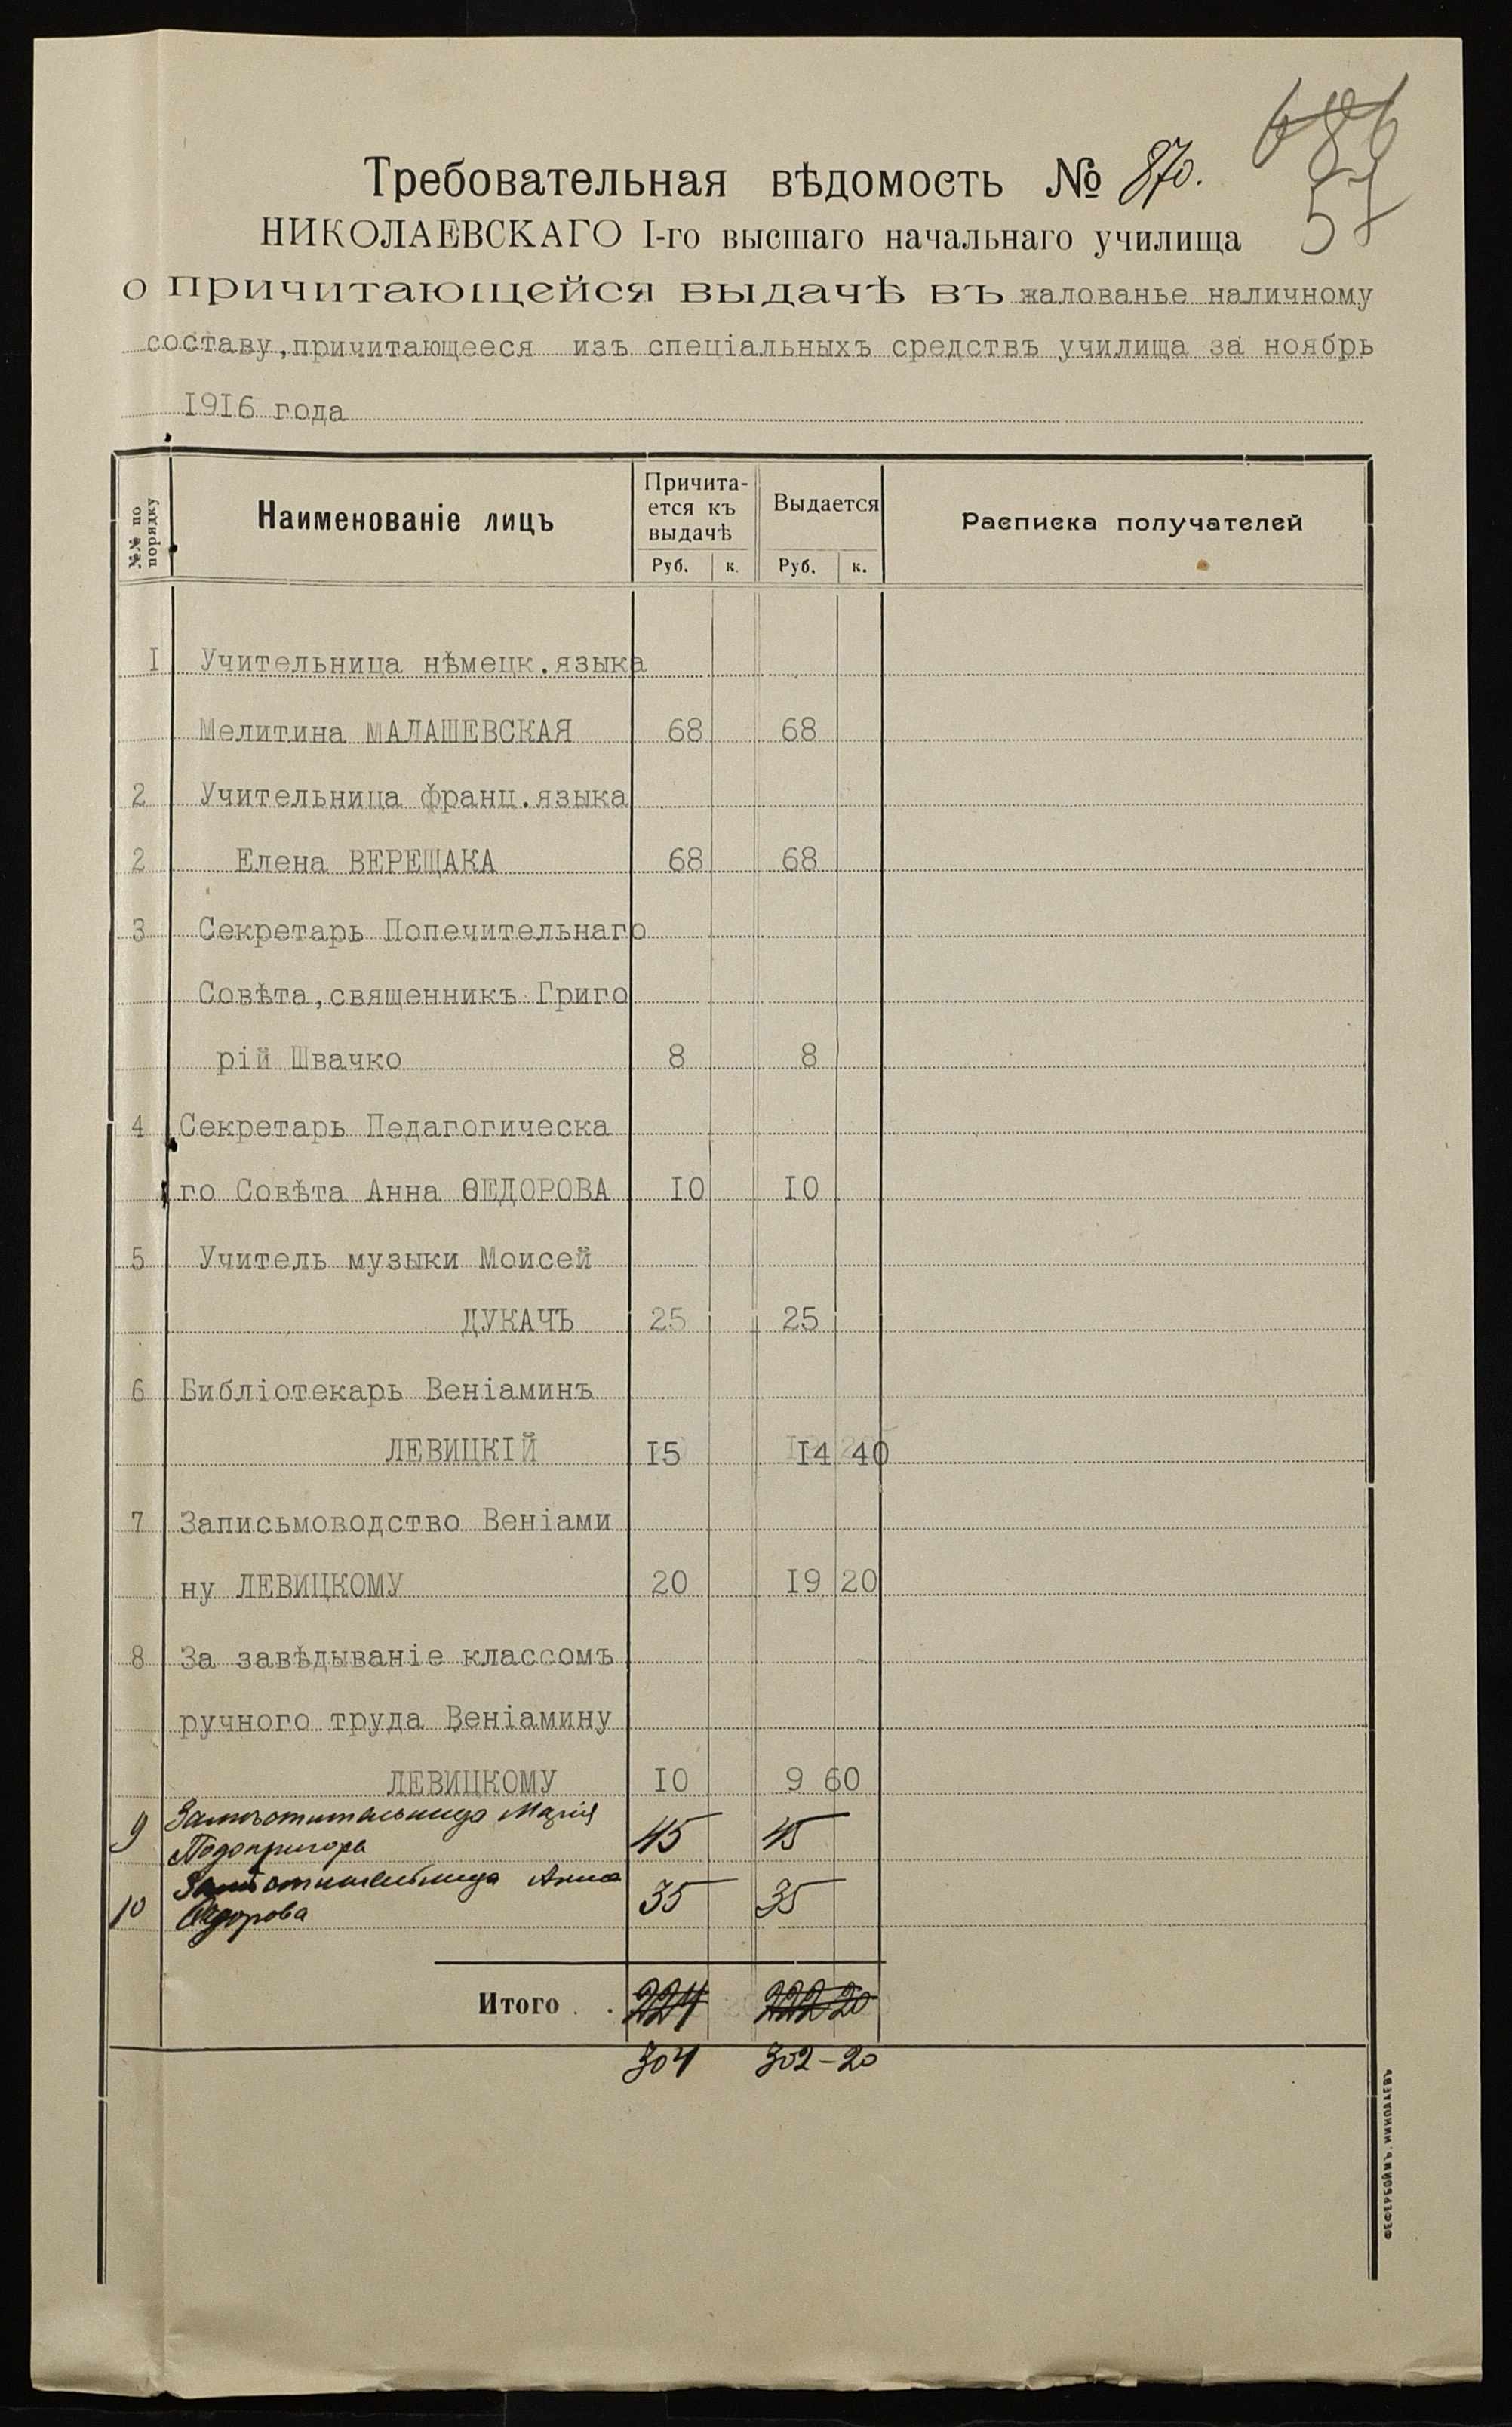 686
57
Требовательная вѣдомость № 870.
НИКОЛАЕВСКАГО I-го высшаго начальнаго училища
о причитающейся выдачѣ въ жалованье наличному
составу,причитающееся изъ спеціальныхъ средствъ училища за ноябрь
1916 года
№№ по порядку
Наименованіе лицъ
Причита-
ется къ
выдачѣ
Выдается
Росписка получателей
Руб. к. Руб. к.
I Учительница нѣмецк.языка
Мелитина МАЛАШЕВСКАЯ 68 68
2 Учительница франц.языка
2 Елена ВЕРЕЩАКА 68 68
3 Секретарь Попечительнаго
Совѣта,священникъ Григо
рій Швачко 8 8
4 Секретарь Педагогическа
го Совѣта Анна ѲЕДОРОВА 10 10
5 Учитель музыки Моисей
ДУКАЧЪ 25 25
6 Библіотекарь Веніаминъ
ЛЕВИЦКІЙ 15 14 40
7 Записьмоводство Веніами
ну ЛЕВИЦКОМУ 20 19 20
8 За завѣдываніе классомъ
ручного труда Веніамину
ЛЕВИЦКОМУ 10 9 60
9 Замѣстительница Марія
Подопригора 45 45
10 Замѣстительница Анна
Ѳедорова 35 35
Итого . . 224 222 20
304 302-20
ФЕФЕРБОЙМЪ, НИКОЛАЕВЪ